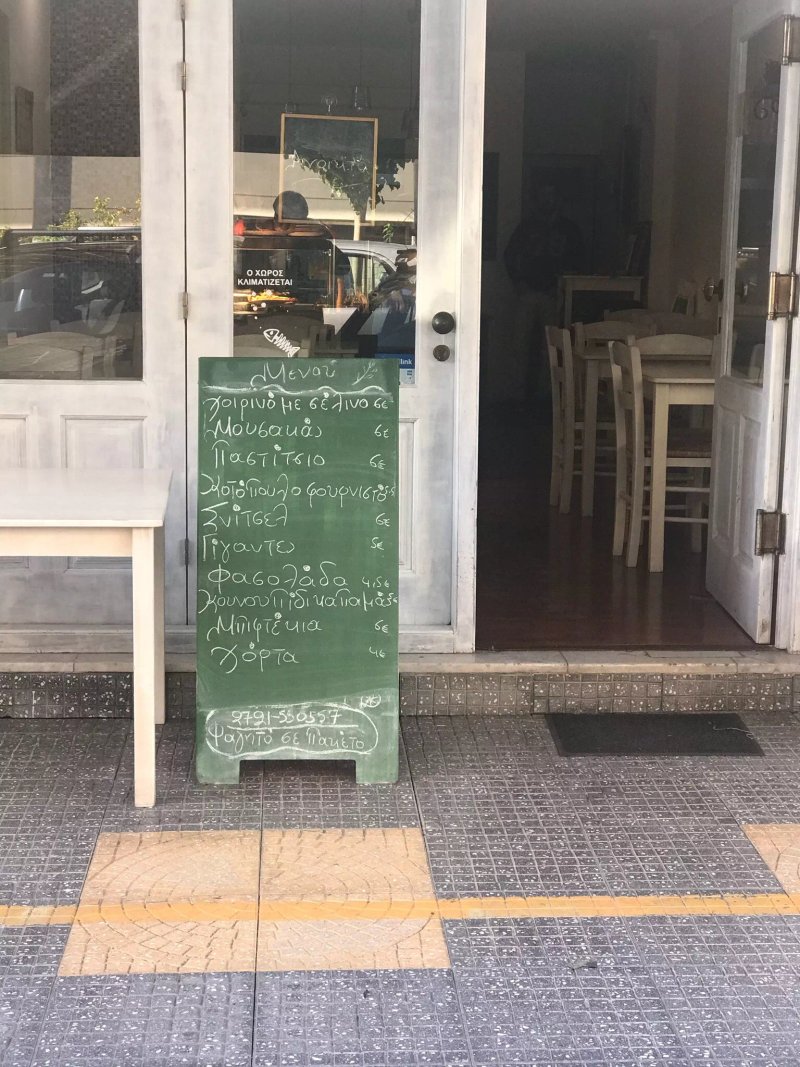 Ο ΧΩΡΟΣ
ΚΛΙΜΑΤΙΖΕΤΑΙ
Μενού
Χοιρινό με σέλινο 6€
Μουσακάς 6€
Παστίτσιο 6€
Κοτόπουλο φουρνιστό
Σνίτσελ 6€
Γίγαντες 5€
Φασολάδα 4,5€
Κουνουπίδι καπαμά 5€
Μπιφτέκια 6€
Χόρτα 4€
2721-550557
Φαγητό σε πακέτο